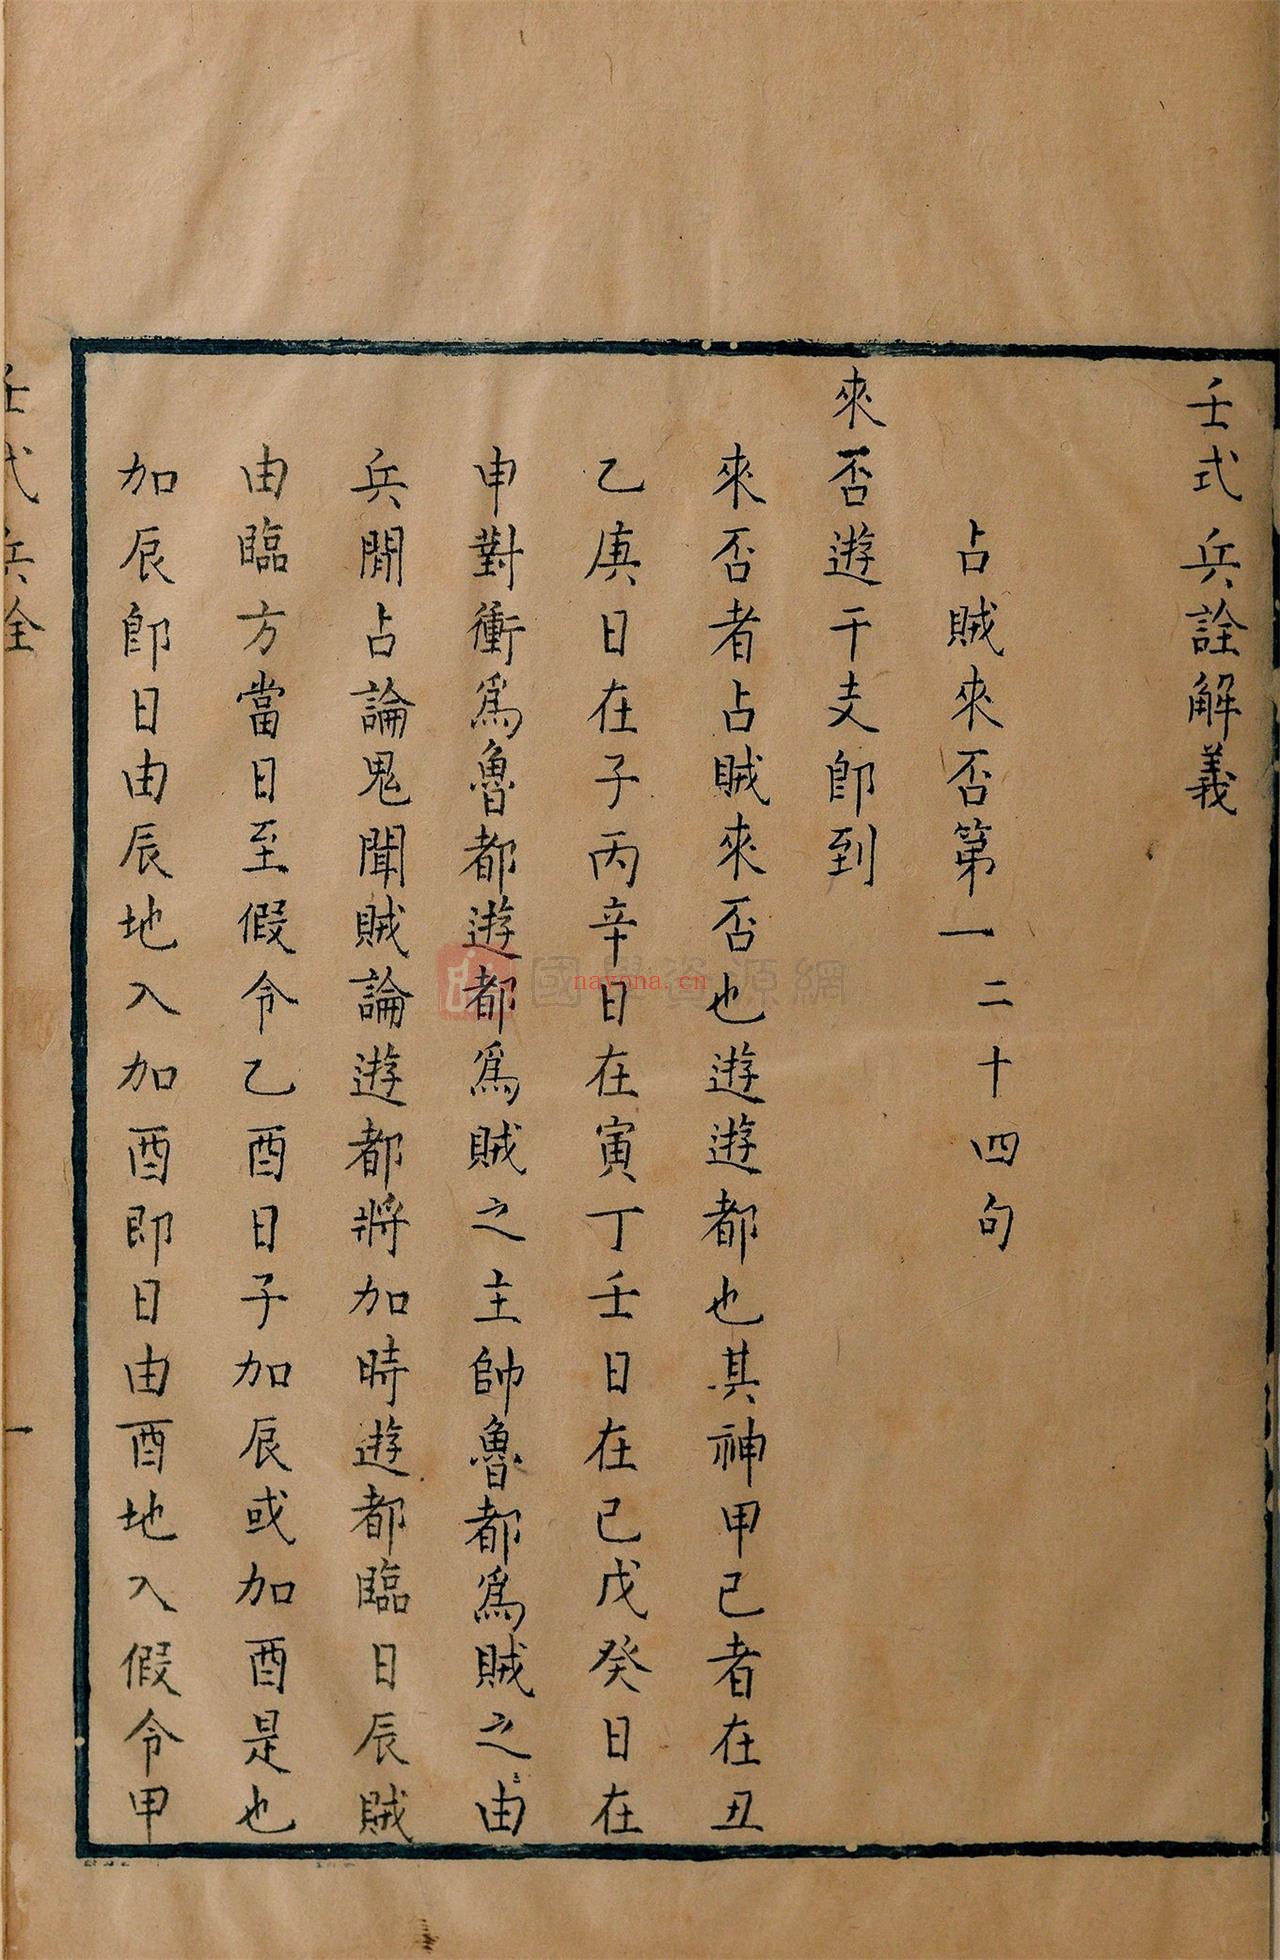 壬式兵詮解義
占賊來否第一二十四句
來否遊干支即到
來否者占賊來否也遊遊都也其神甲己者在丑
乙庚日在子丙辛日在寅丁壬日在巳戊癸日在
申對衝爲魯都遊都爲賊之主帥魯都爲賊之由
兵閒占論鬼聞賊論遊都將加時遊都臨日辰賊
由臨方當日至假令乙酉日子加辰或加酉是也
加辰即日由辰地入加酉即日由酉地入假令甲
壬式兵詮
一
國學資源網
nayona.cn